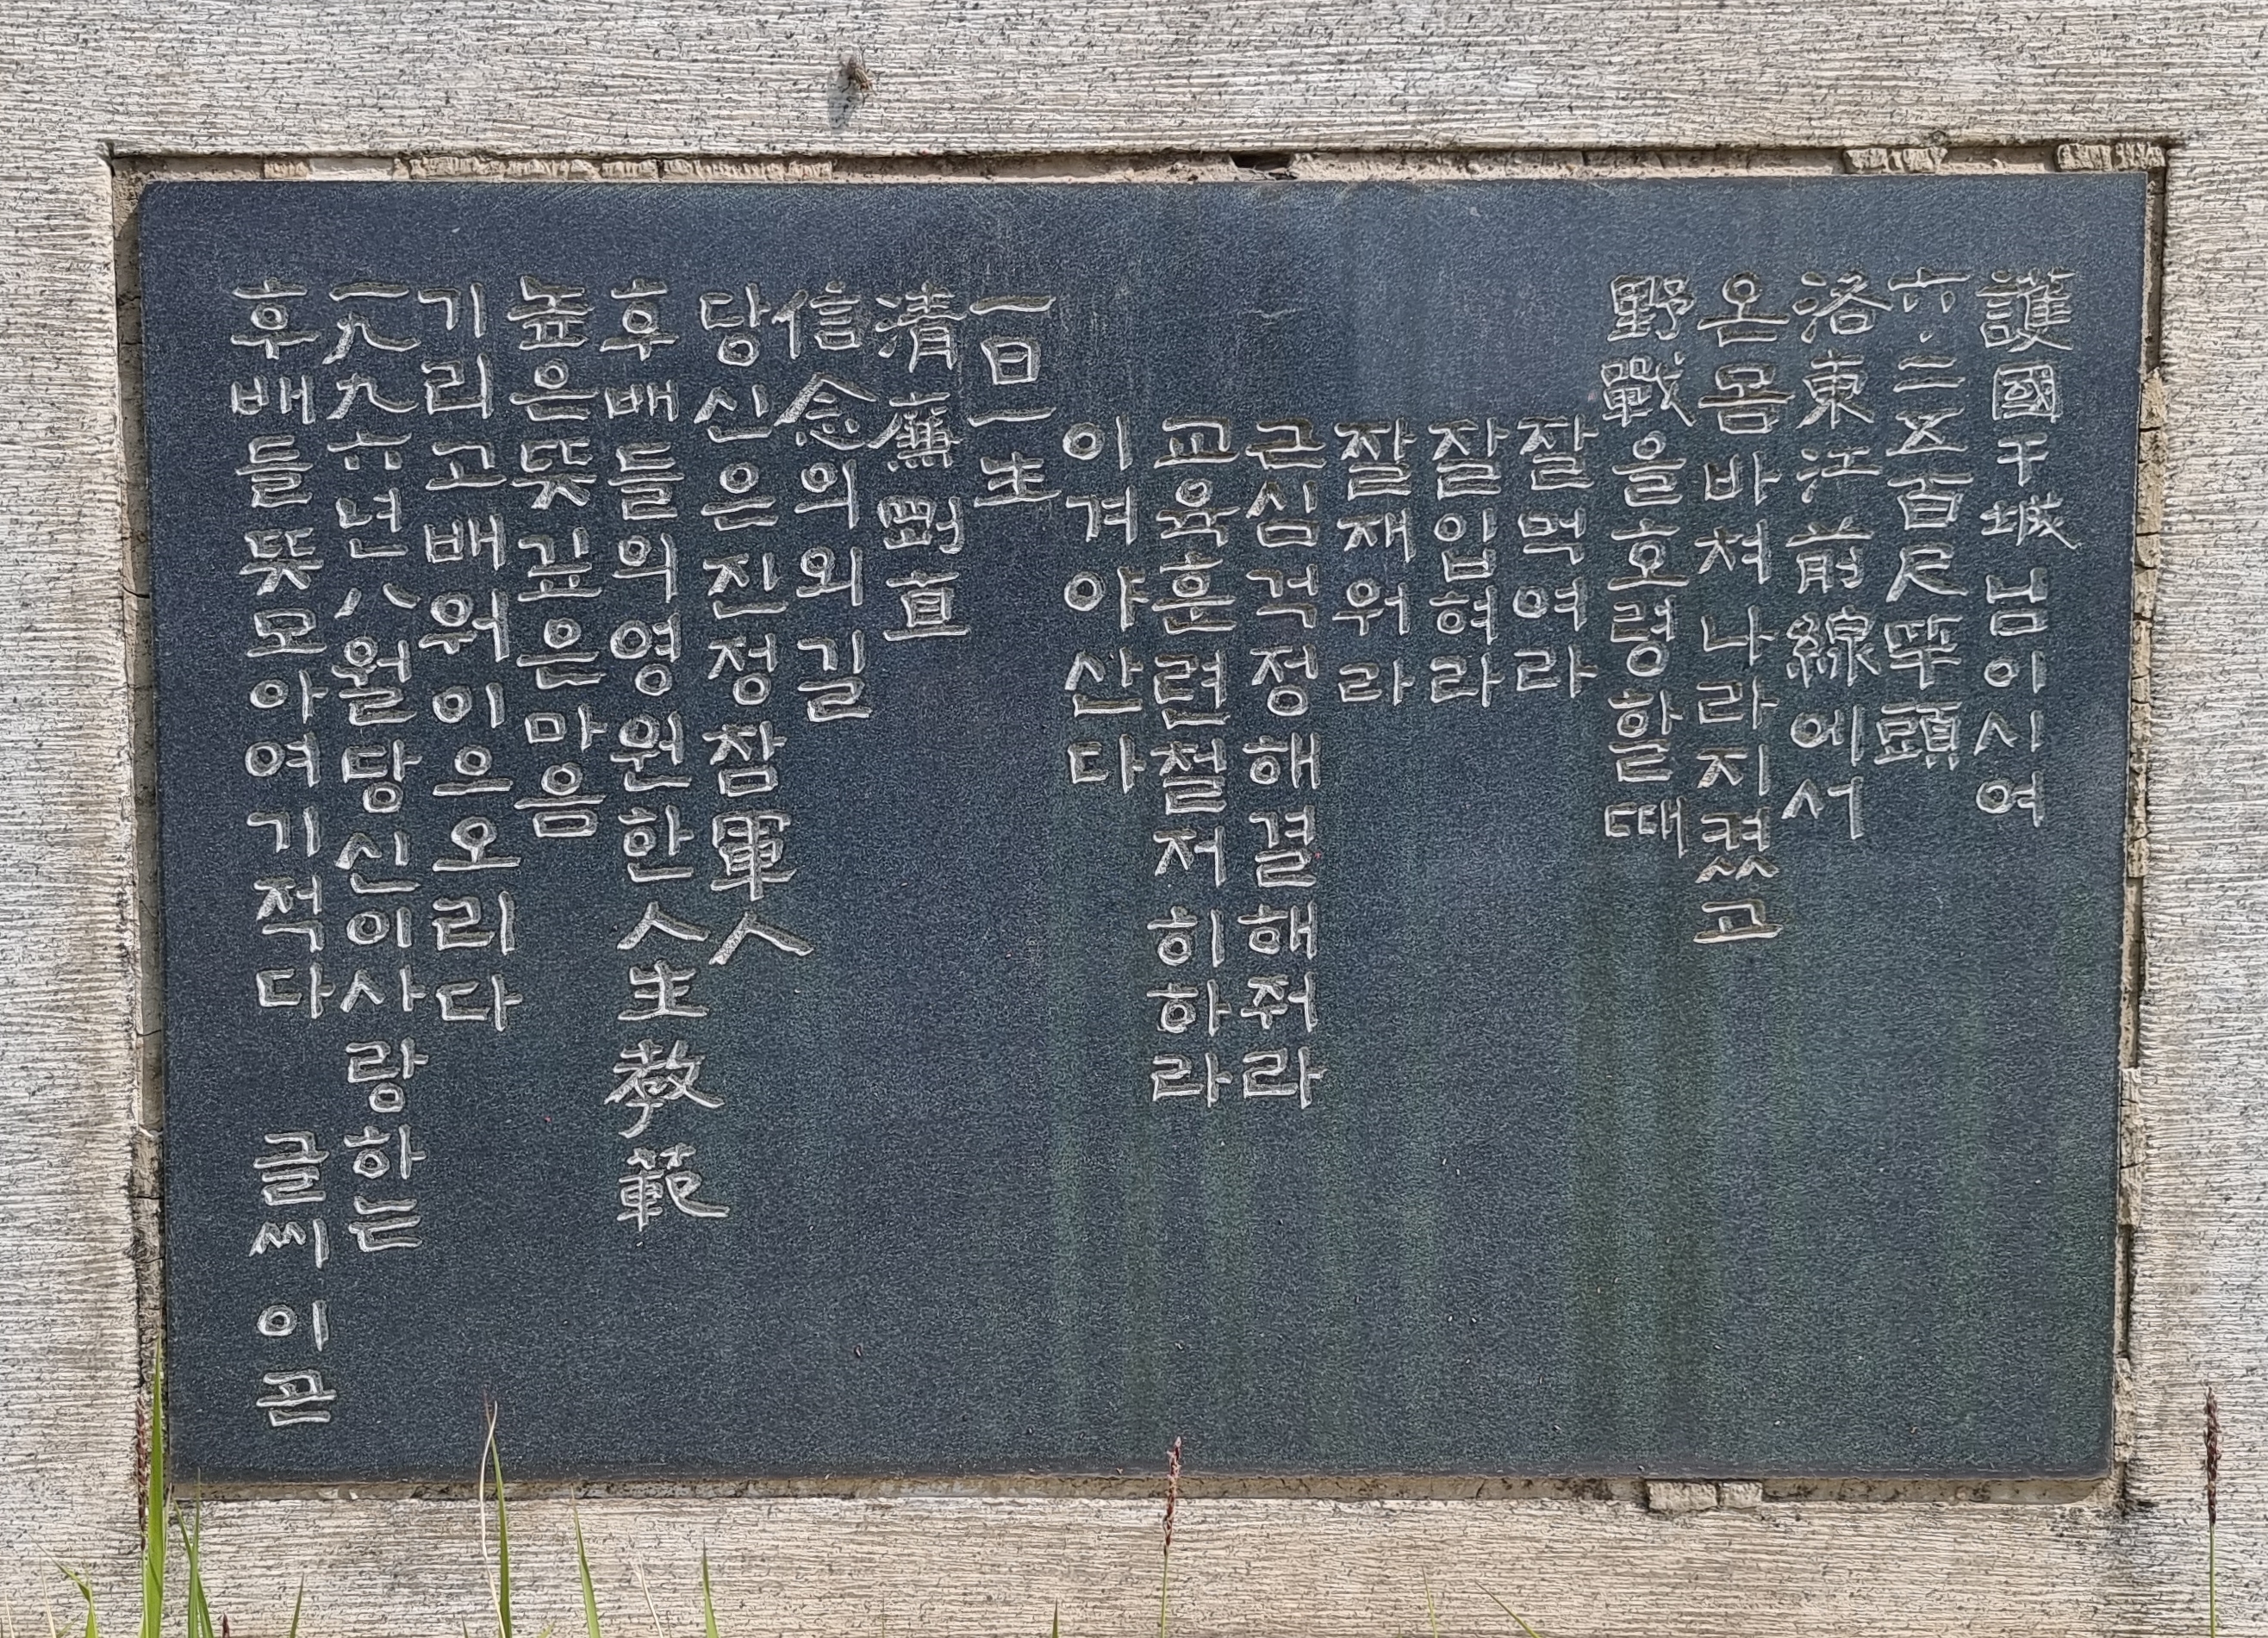 護國干城님이시여
六·二五百尺竿頭
洛東江前線에서
온몸바쳐나라지켰고
野戰을호령할때
잘먹여라
잘입혀라
잘재워라
근심걱정해결해줘라
교육훈련철저히하라
이겨야산다
一日一生
清廉剛直
信念의외길
당신은진정참軍人
후배들의영원한人生敎範
높은뜻깊은마음
기리고배워이으오리다
一九九六년八월당신이사랑하는
후배들뜻모아여기적다 글씨 이곤